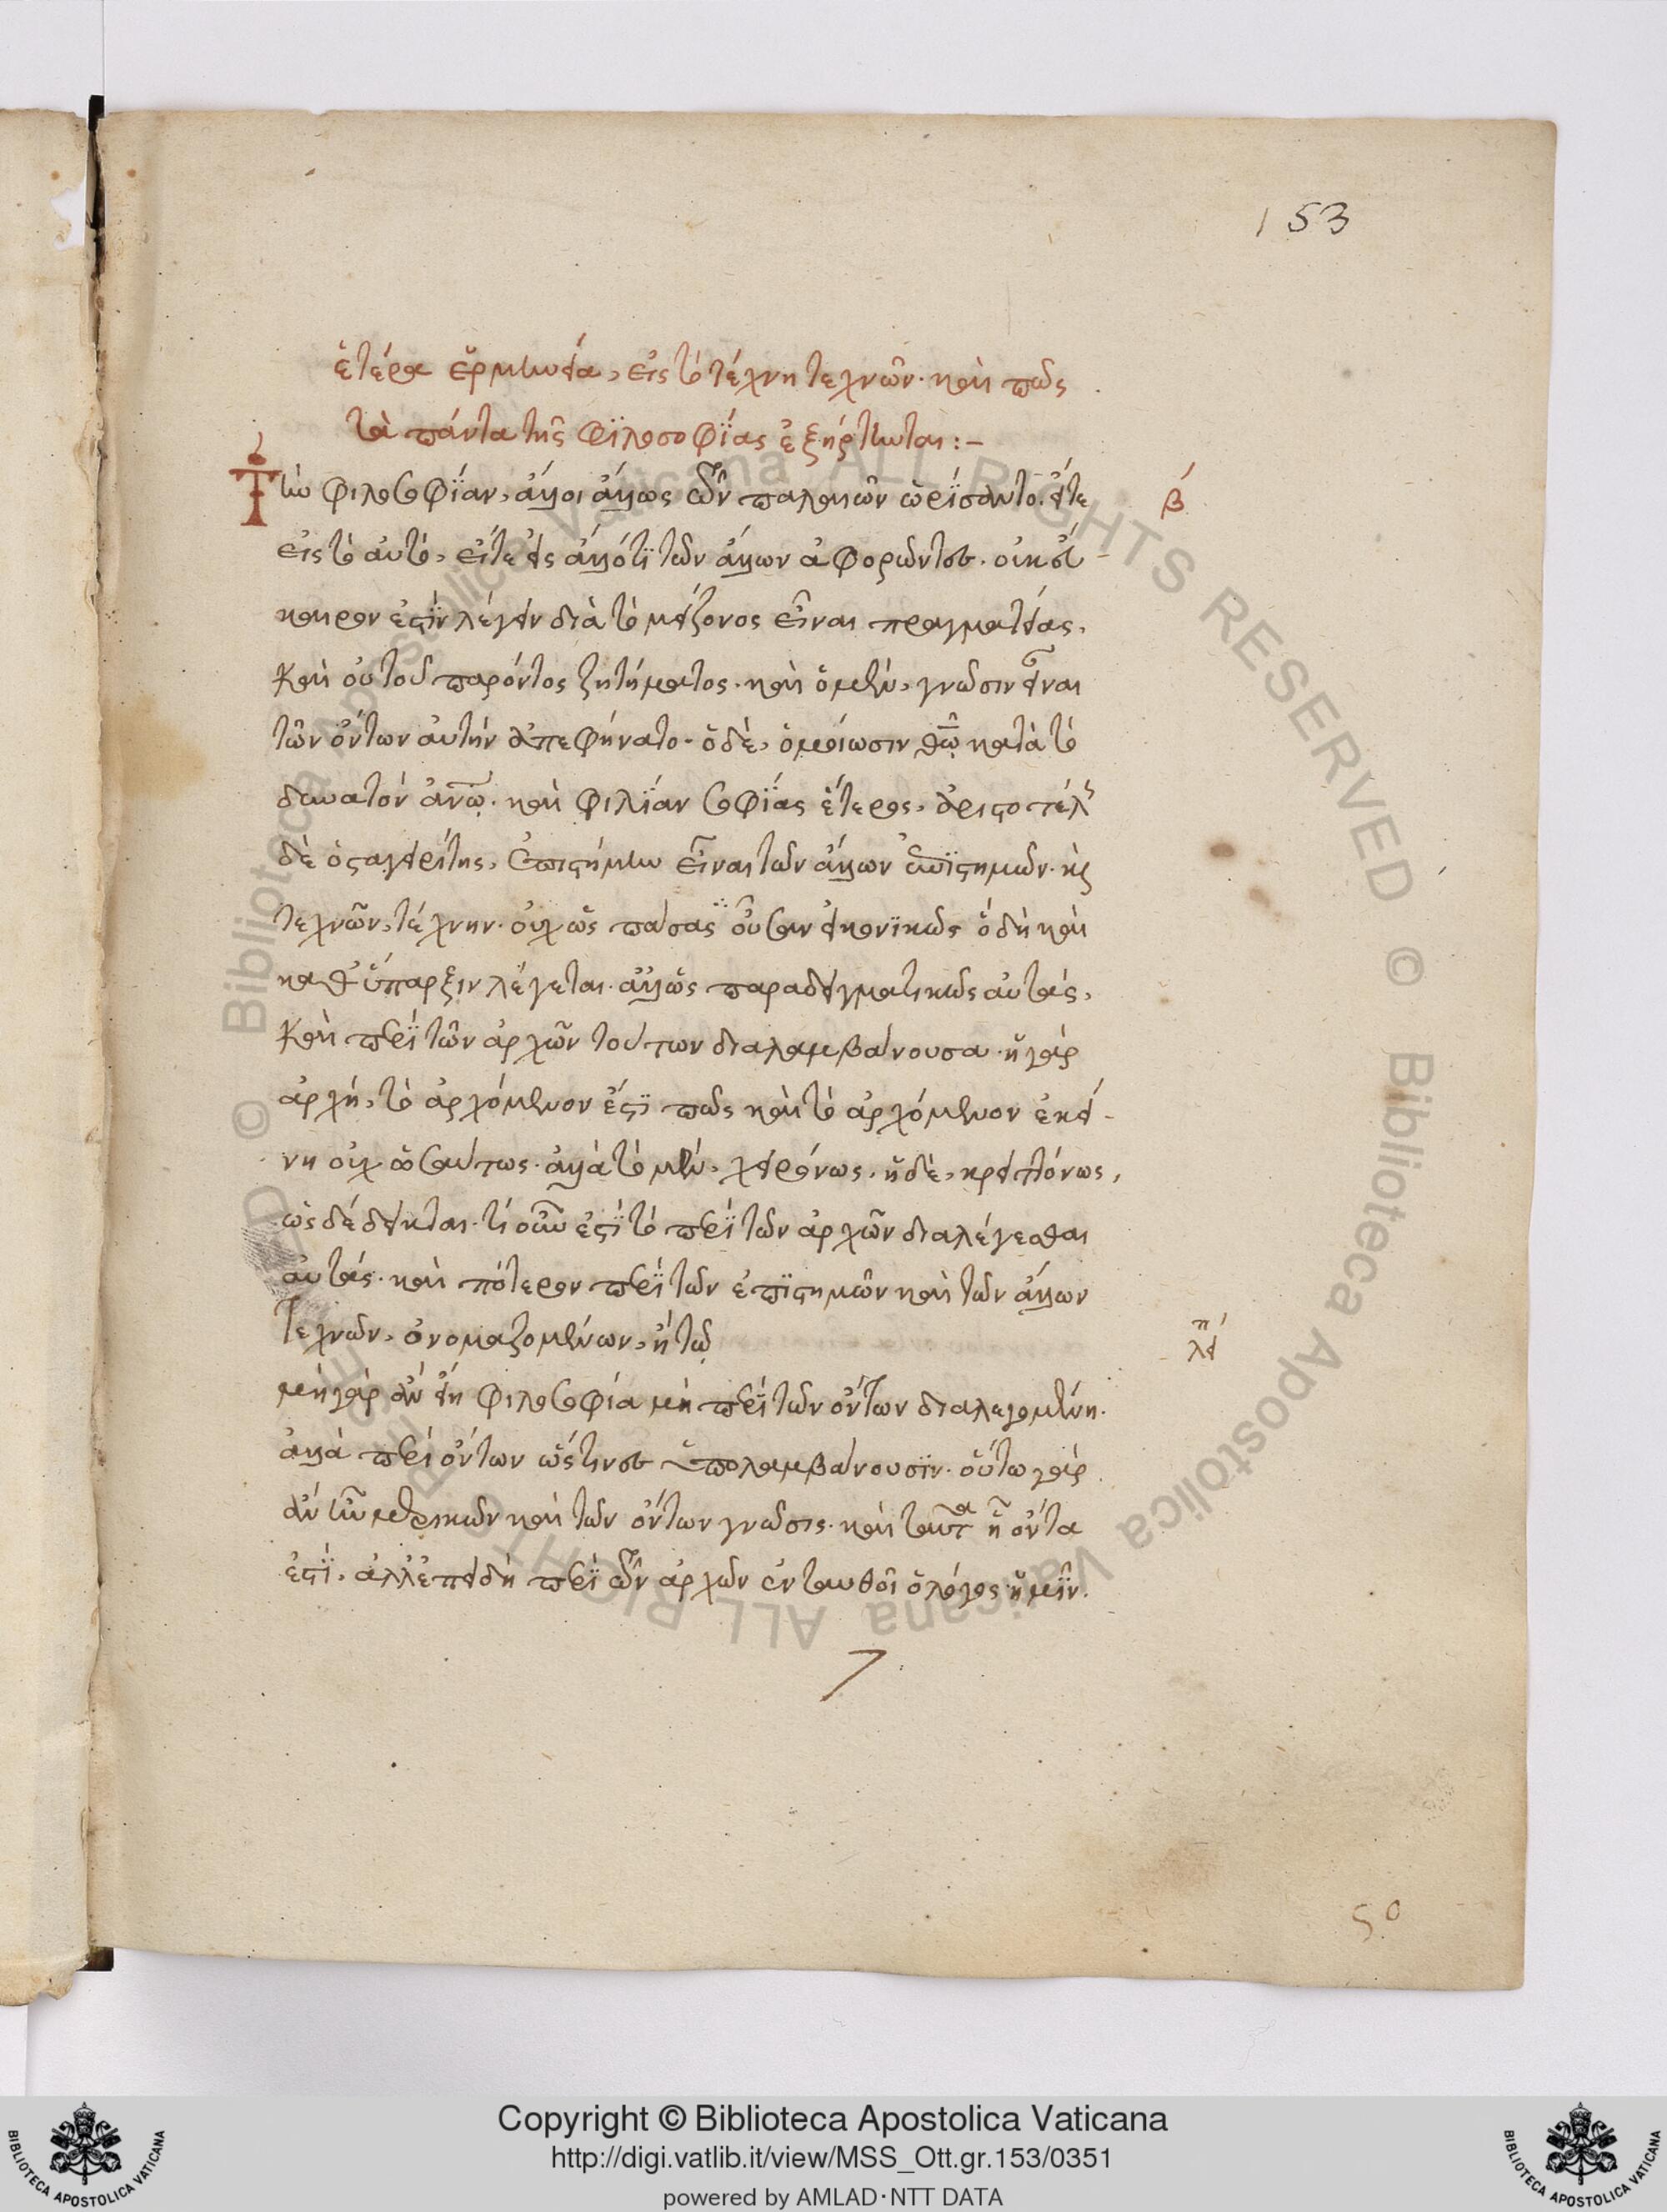 153
ἑτέρα ἑρμηνεία, εἰς τὸ τέχνη τεχνῶν· καὶ πῶς
τὰ πάντα τῆς φϊλοσοφΐας ἐξήρτηται:–
Τὴν φιλοσοφΐαν, ἄλλοι ἄλλως τῶν παλαιῶν ὡρΐσαντο. εἴτε β´
εἰς τὸ αὐτὸ, εἴτε εἰς ἄλλό τϊ τῶν ἄλλων ἀφορῶντες.
καιρον ἐστϊν λέγειν διὰ τὸ μείζονος εἶναι πραγματείας,
καὶ οὐ τοῦ παρόντος ζητήματος. καὶ ὁ μὲν, γνῶσιν εἶναι
τῶν ὄντων αὐτὴν ἀπεφήνατο· ὁ δὲ, ὁμοίωσιν θῶ κατὰ τὸ
δυνατὸν ἀνῶ. καὶ φιλΐαν σοφΐας ἕτερος, ἀριστοτέλ
δὲ ὁ σταγειρίτης, ἐπιστήμην εἶναι τῶν ἄλλων ἐπϊστημῶν. κ
τεχνῶν, τέχνην. οὐχ ὡς πάσας οὖσαν εἰκονϊκῶς ὃ δὴ καὶ
καθ᾽ ὕπαρξιν λέγεται. ἀλλ᾽ ὡς παραδειγματικῶς αὐτάς,
καὶ περῒ τῶν ἀρχῶν τούτων διαλαμβάνουσα. ἡ γὰρ
ἀρχή, τὸ ἀρχόμενον ἐστΐ πως καὶ τὸ ἀρχόμενον ἐκεί-
νη οὐχ ὡσαύτως. ἀλλὰ τὸ μὲν, χειρόνως. ἡ δὲ, κρειττόνως,
ὡς δέδεικται. τί οὖν ἐστῒ τὸ περῒ τῶν ἀρχῶν διαλέγεσθαι
αὐτάς. καὶ πότερον περῒ τῶν ἐπϊστημῶν καὶ τῶν ἄλλων
τεχνῶν, ὀνομαζομένων, ἢ τῷ
λεί π
μὴ γὰρ ἂν εἴη φιλοσοφία μὴ περῒ τῶν ὄντων διαλεγομένη.
ἀλλὰ περὶ ὄντων ὥς τινες ὑπολαμβάνουσϊν. οὕτω γὰρ
ἂν ἦν μερικῶν καὶ τῶν ὄντων γνῶσις. καὶ ταῦτα ᾗ ὄντα
ἐστΐ. ἀλλ᾽ ἐπειδὴ περῒ τῶν ἀρχῶν ἐνταυθοῖ ὁ λόγος ἡμῖν.
50
Copyright © Biblioteca Apostolica Vaticana
http://digi.vatlib.it/view/MSS_Ott.gr.153/0351
powered by AMLAD·NTT DATA
BIBLIOTECA APOSTOLICA VATICANA
BIBLIOTECA APOSTOLICA VATICANA
© Biblioteca Apostolica Vaticana ALL RIGHTS RESERVED
© Biblioteca Apostolica Vaticana ALL RIGHTS RESERVED